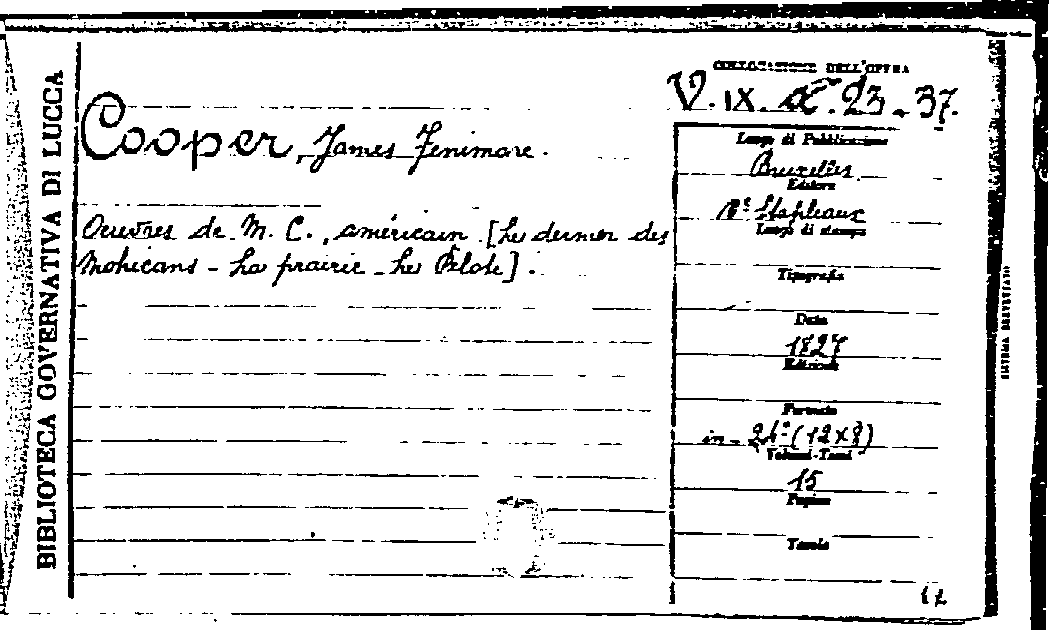 BIBLIOTECA GOVERNATIVA DI LUCCA
COLLOCAZIONE DELL'OPERA
V. IX. 23-37.
Cooper, James Fenimore.
Oeuvres de M. C., américain [Le dernier des
Mohicans - La prairie - Le Pilote].
Luogo di Pubblicazione
Bruxelles
Editore
Stapleaux
Luogo di stampa
Tipografia
Data
1827
Edizione
Formato
in-24º (12x8)
Volumi-Tomi
15
Pagine
Tavole
SISTEMA BREVETTATO